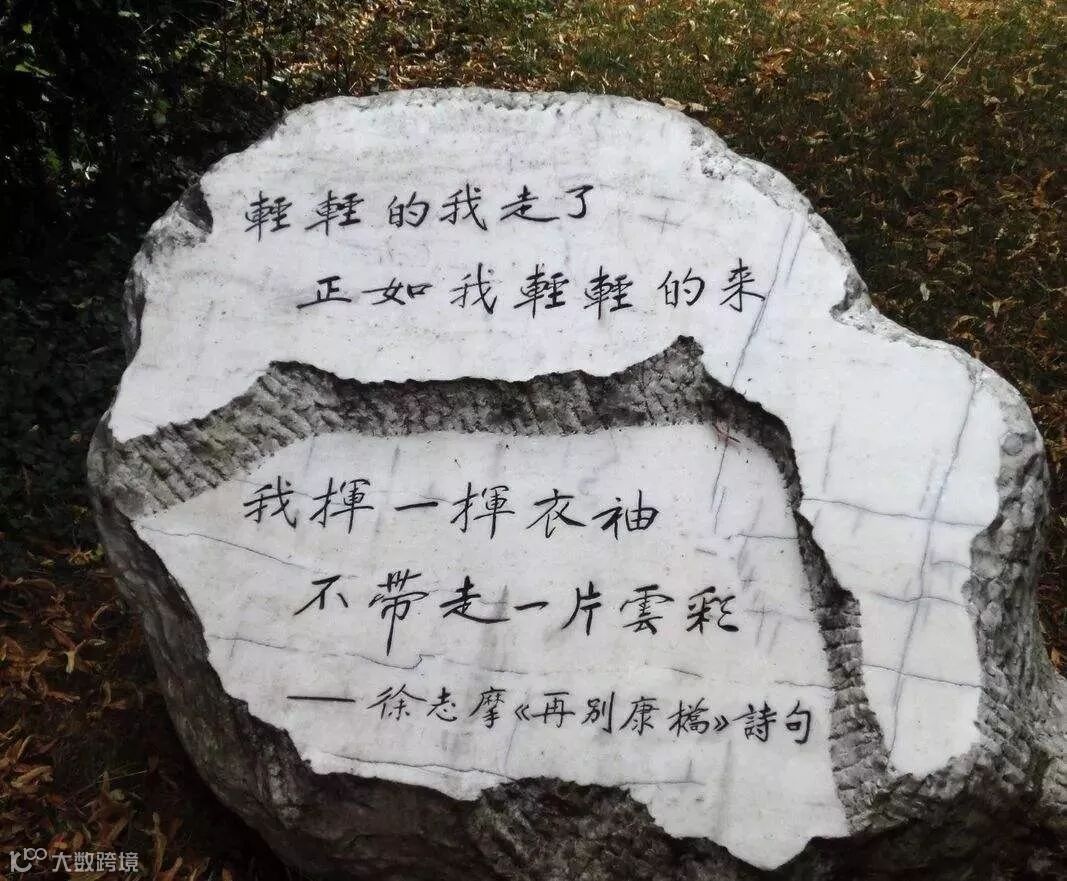 輕輕的我走了
正如我輕輕的来
我揮一揮衣袖
不帶走一片雲彩
——徐志摩《再别康橋》詩句
大数跨境